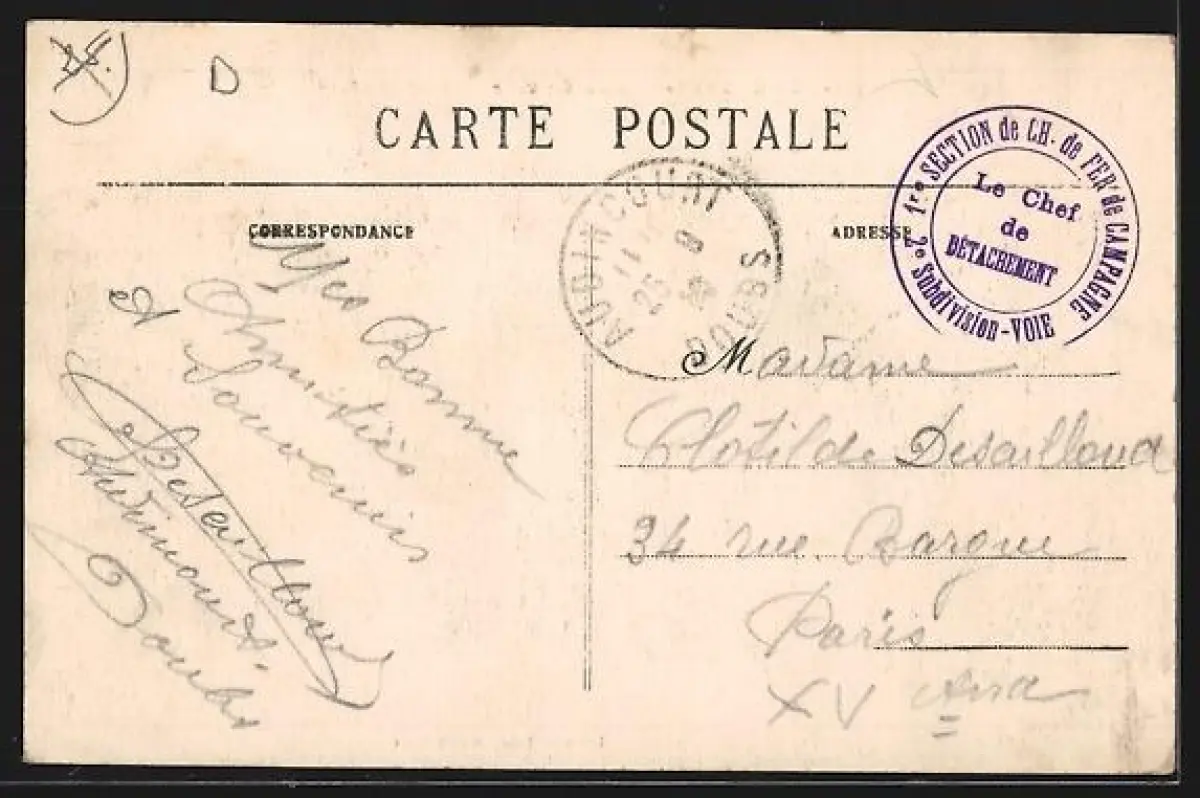 25.
D
CARTE POSTALE
CORRESPONDANCE
ADRESSE
1re SECTION de CH. de FER de CAMPAGNE
2e Subdivision-VOIE
Le Chef
de
DÉTACHEMENT
AUDINCOURT
25 9
DOUBS
Mes Bonne
Amitiés
et Souvenirs
Desailloud
Audincourt
Doubs
Madame
Clotilde Desailloud
34 rue Bargue
Paris
XV